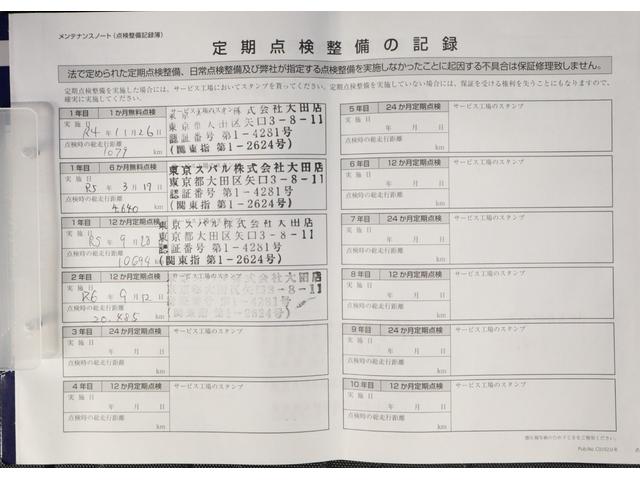 メンテナンスノート(点検整備記録簿)
定期点検整備の記録
法で定められた定期点検整備、日常点検整備及び弊社が指定する点検整備を実施しなかったことに起因する不具合は保証修理致しません。
定期点検整備を実施した場合には、サービス工場においてスタンプを貰ってください。定期点検整備を実施していない場合には、保証を受ける権利を失うことにもなりますので、
確実に実施してください。
1年目 1か月無料点検
サービス工場のスタンプ
株式会社大田店
実施日
R4年11月26日
東京都大田区矢口3-8-11
点検時の総走行距離
認証番号 第1-4281号
1079 km
(関東指 第1-2624号)
1年目 6か月無料点検
東京スバル株式会社大田店
実施日
R5年3月19日
東京都大田区矢口3-8-11
点検時の総走行距離
認証番号 第1-4281号
4640 km
(関東指 第1-2624号)
1年目 12か月定期点検
東京スバル株式会社大田店
実施日
R5年9月20日
東京都大田区矢口3-8-11
点検時の総走行距離
認証番号 第1-4281号
10694 km
(関東指 第1-2624号)
2年目 12か月定期点検
東京スバル株式会社大田店
実施日
R6年9月12日
東京都大田区矢口3-8-11
点検時の総走行距離
認証番号 第1-4281号
20.485 km
(関東指 第1-2624号)
3年目 24か月定期点検
サービス工場のスタンプ
実施日
年 月 日
点検時の総走行距離
km
4年目 12か月定期点検
サービス工場のスタンプ
実施日
年 月 日
点検時の総走行距離
km
5年目 24か月定期点検
サービス工場のスタンプ
実施日
年 月 日
点検時の総走行距離
km
6年目 12か月定期点検
サービス工場のスタンプ
実施日
年 月 日
点検時の総走行距離
km
7年目 24か月定期点検
サービス工場のスタンプ
実施日
年 月 日
点検時の総走行距離
km
8年目 12か月定期点検
サービス工場のスタンプ
実施日
年 月 日
点検時の総走行距離
km
9年目 24か月定期点検
サービス工場のスタンプ
実施日
年 月 日
点検時の総走行距離
km
10年目 12か月定期点検
サービス工場のスタンプ
実施日
年 月 日
点検時の総走行距離
km